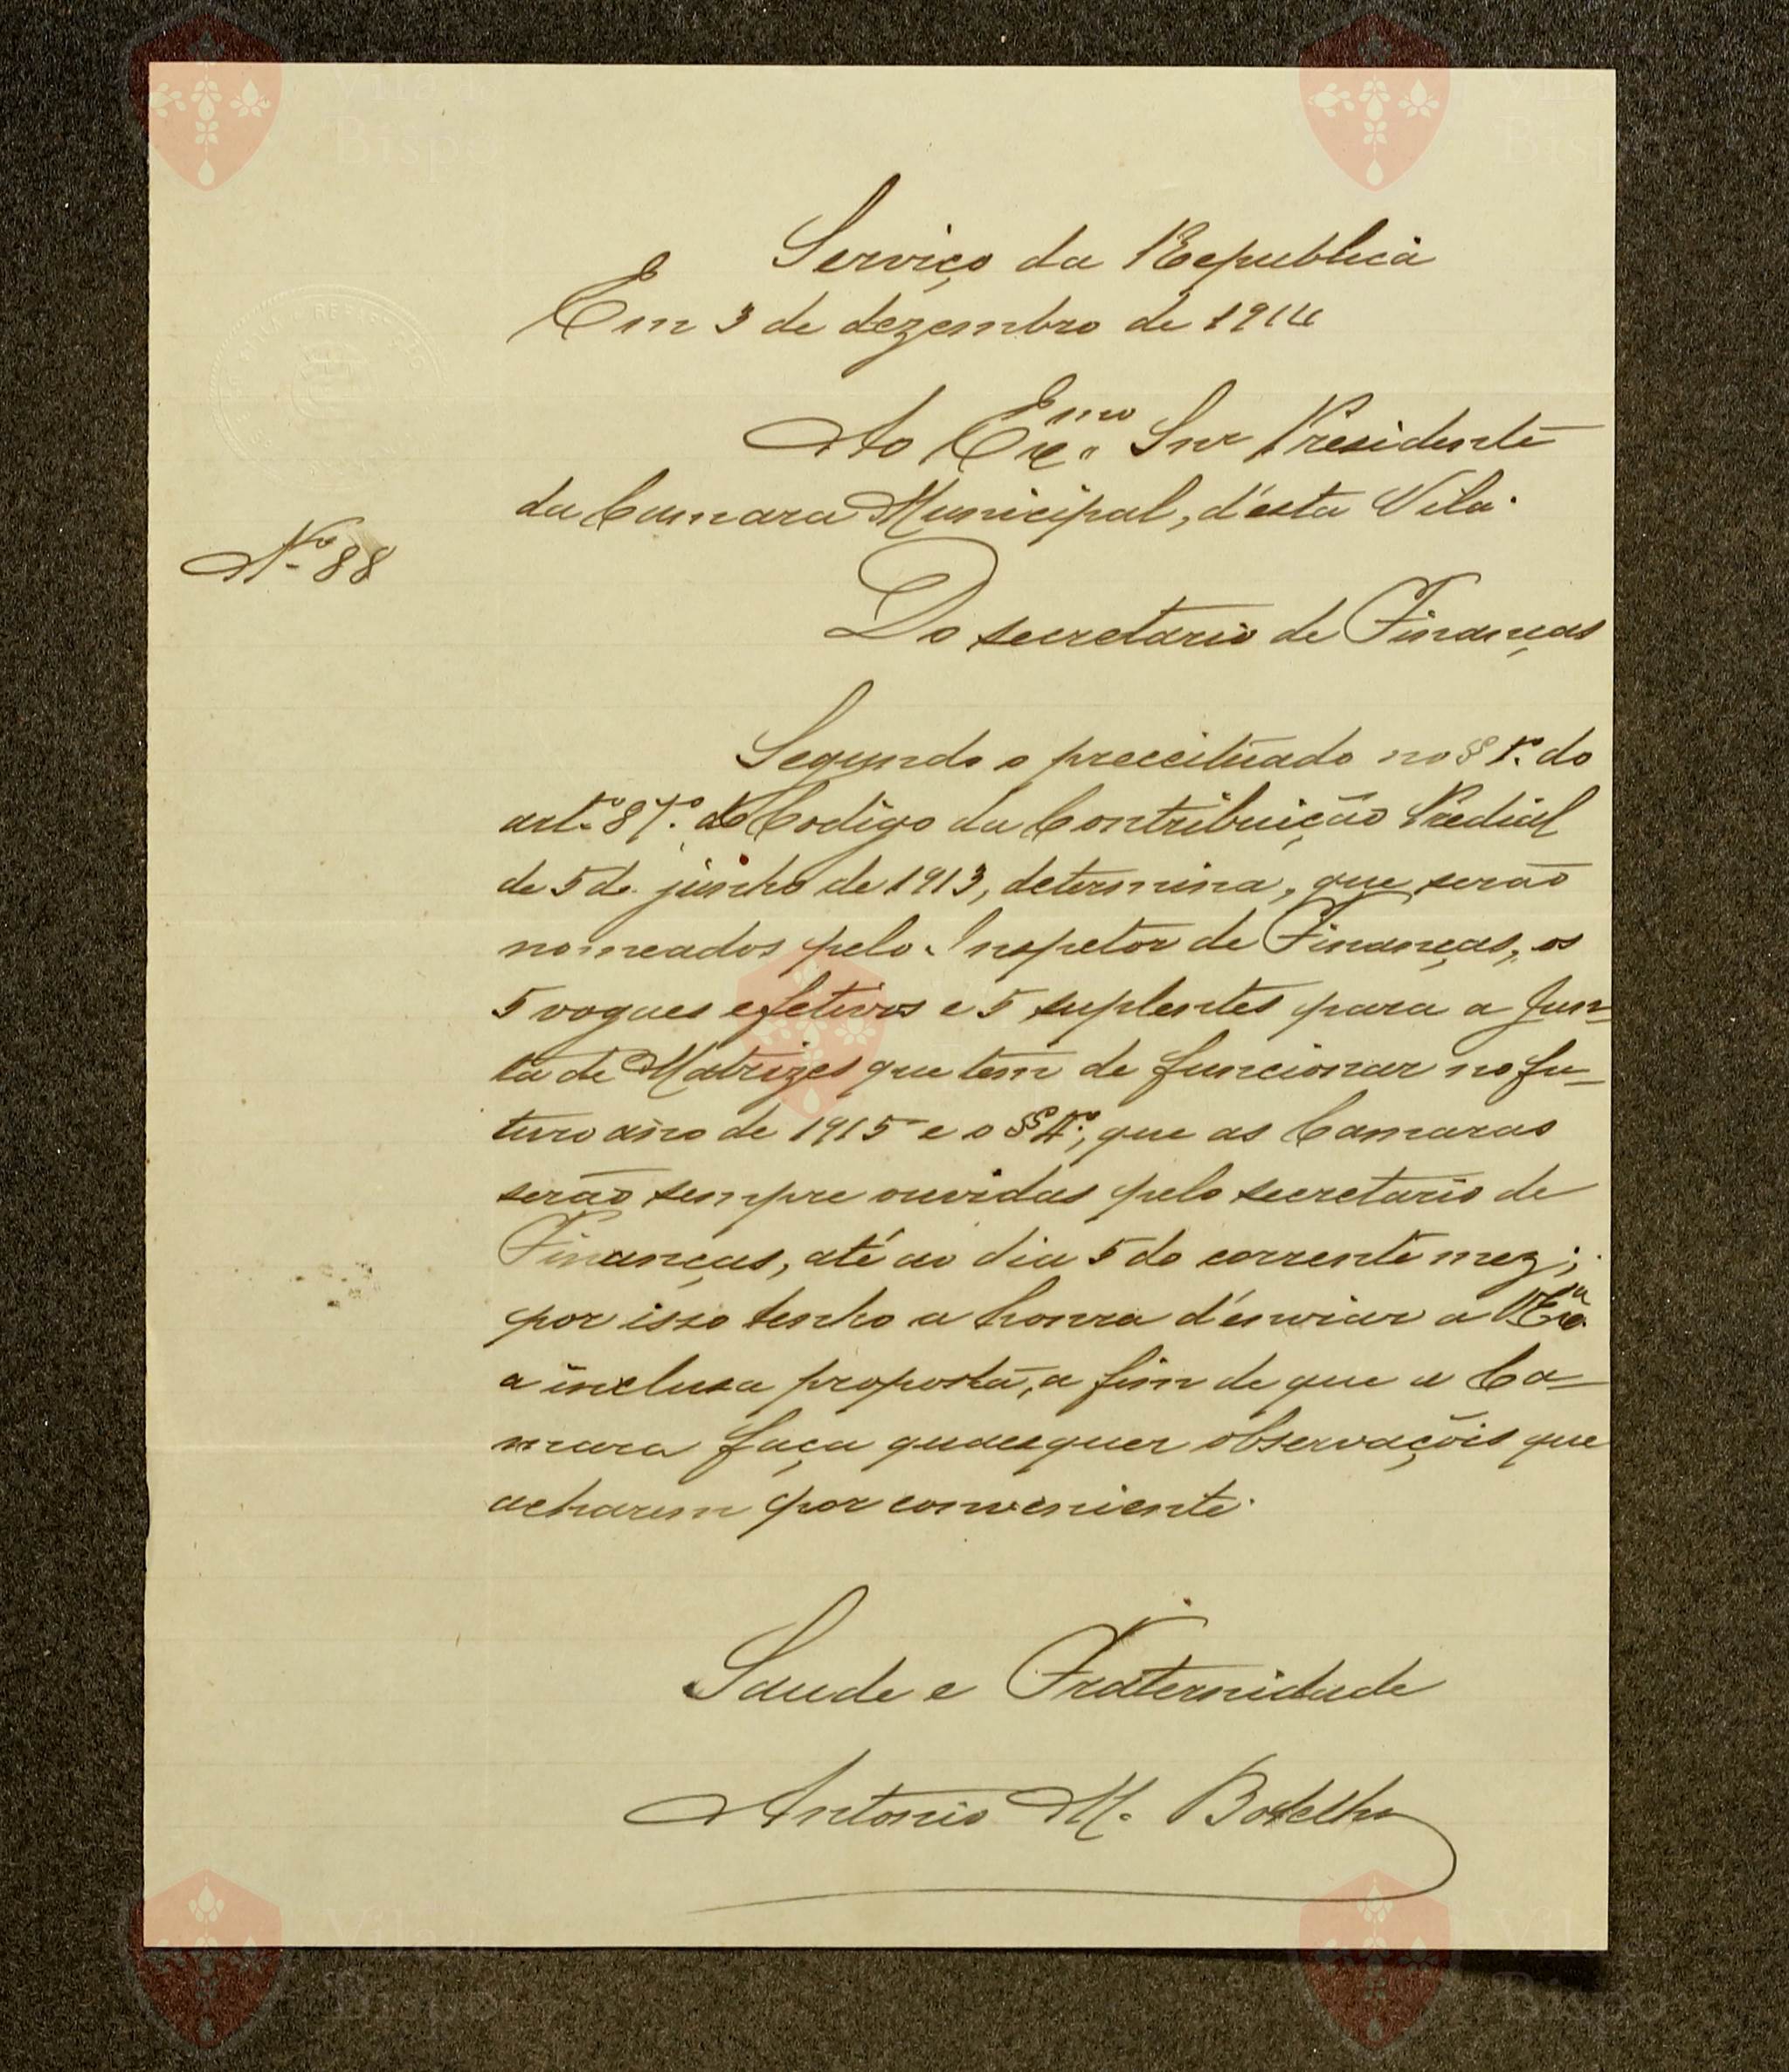 Serviço da Republica
Em 3 de dezembro de 1914
Ao Exmo. Snr Presidente
da Camara Municipal, d'esta Vila.
Nº 88
Do secretario de Finanças
Segundo o preceituado no § 1º. do
artº 87º. do Codigo da Contribuição Predial
de 5 de junho de 1913, determina, que serão
nomeados pelo Inspetor de Finanças, os
5 vogaes efetivos e 5 suplentes para a Jun-
ta de Matrizes que tem de funcionar no fu-
turo ano de 1915 e o § 4º, que as Camaras
serão sempre ouvidas pelo secretario de
Finanças, até ao dia 5 do corrente mez;
por isso tenho a honra d'enviar a V Exa.
a inclusa proposta, a fim de que a Ca-
mara faça quaesquer observaçõis que
acharem por conveniente.
Saude e Fraternidade
Antonio M. Botelho
Vila
Bispo
Bispo
REPARTIÇÃO